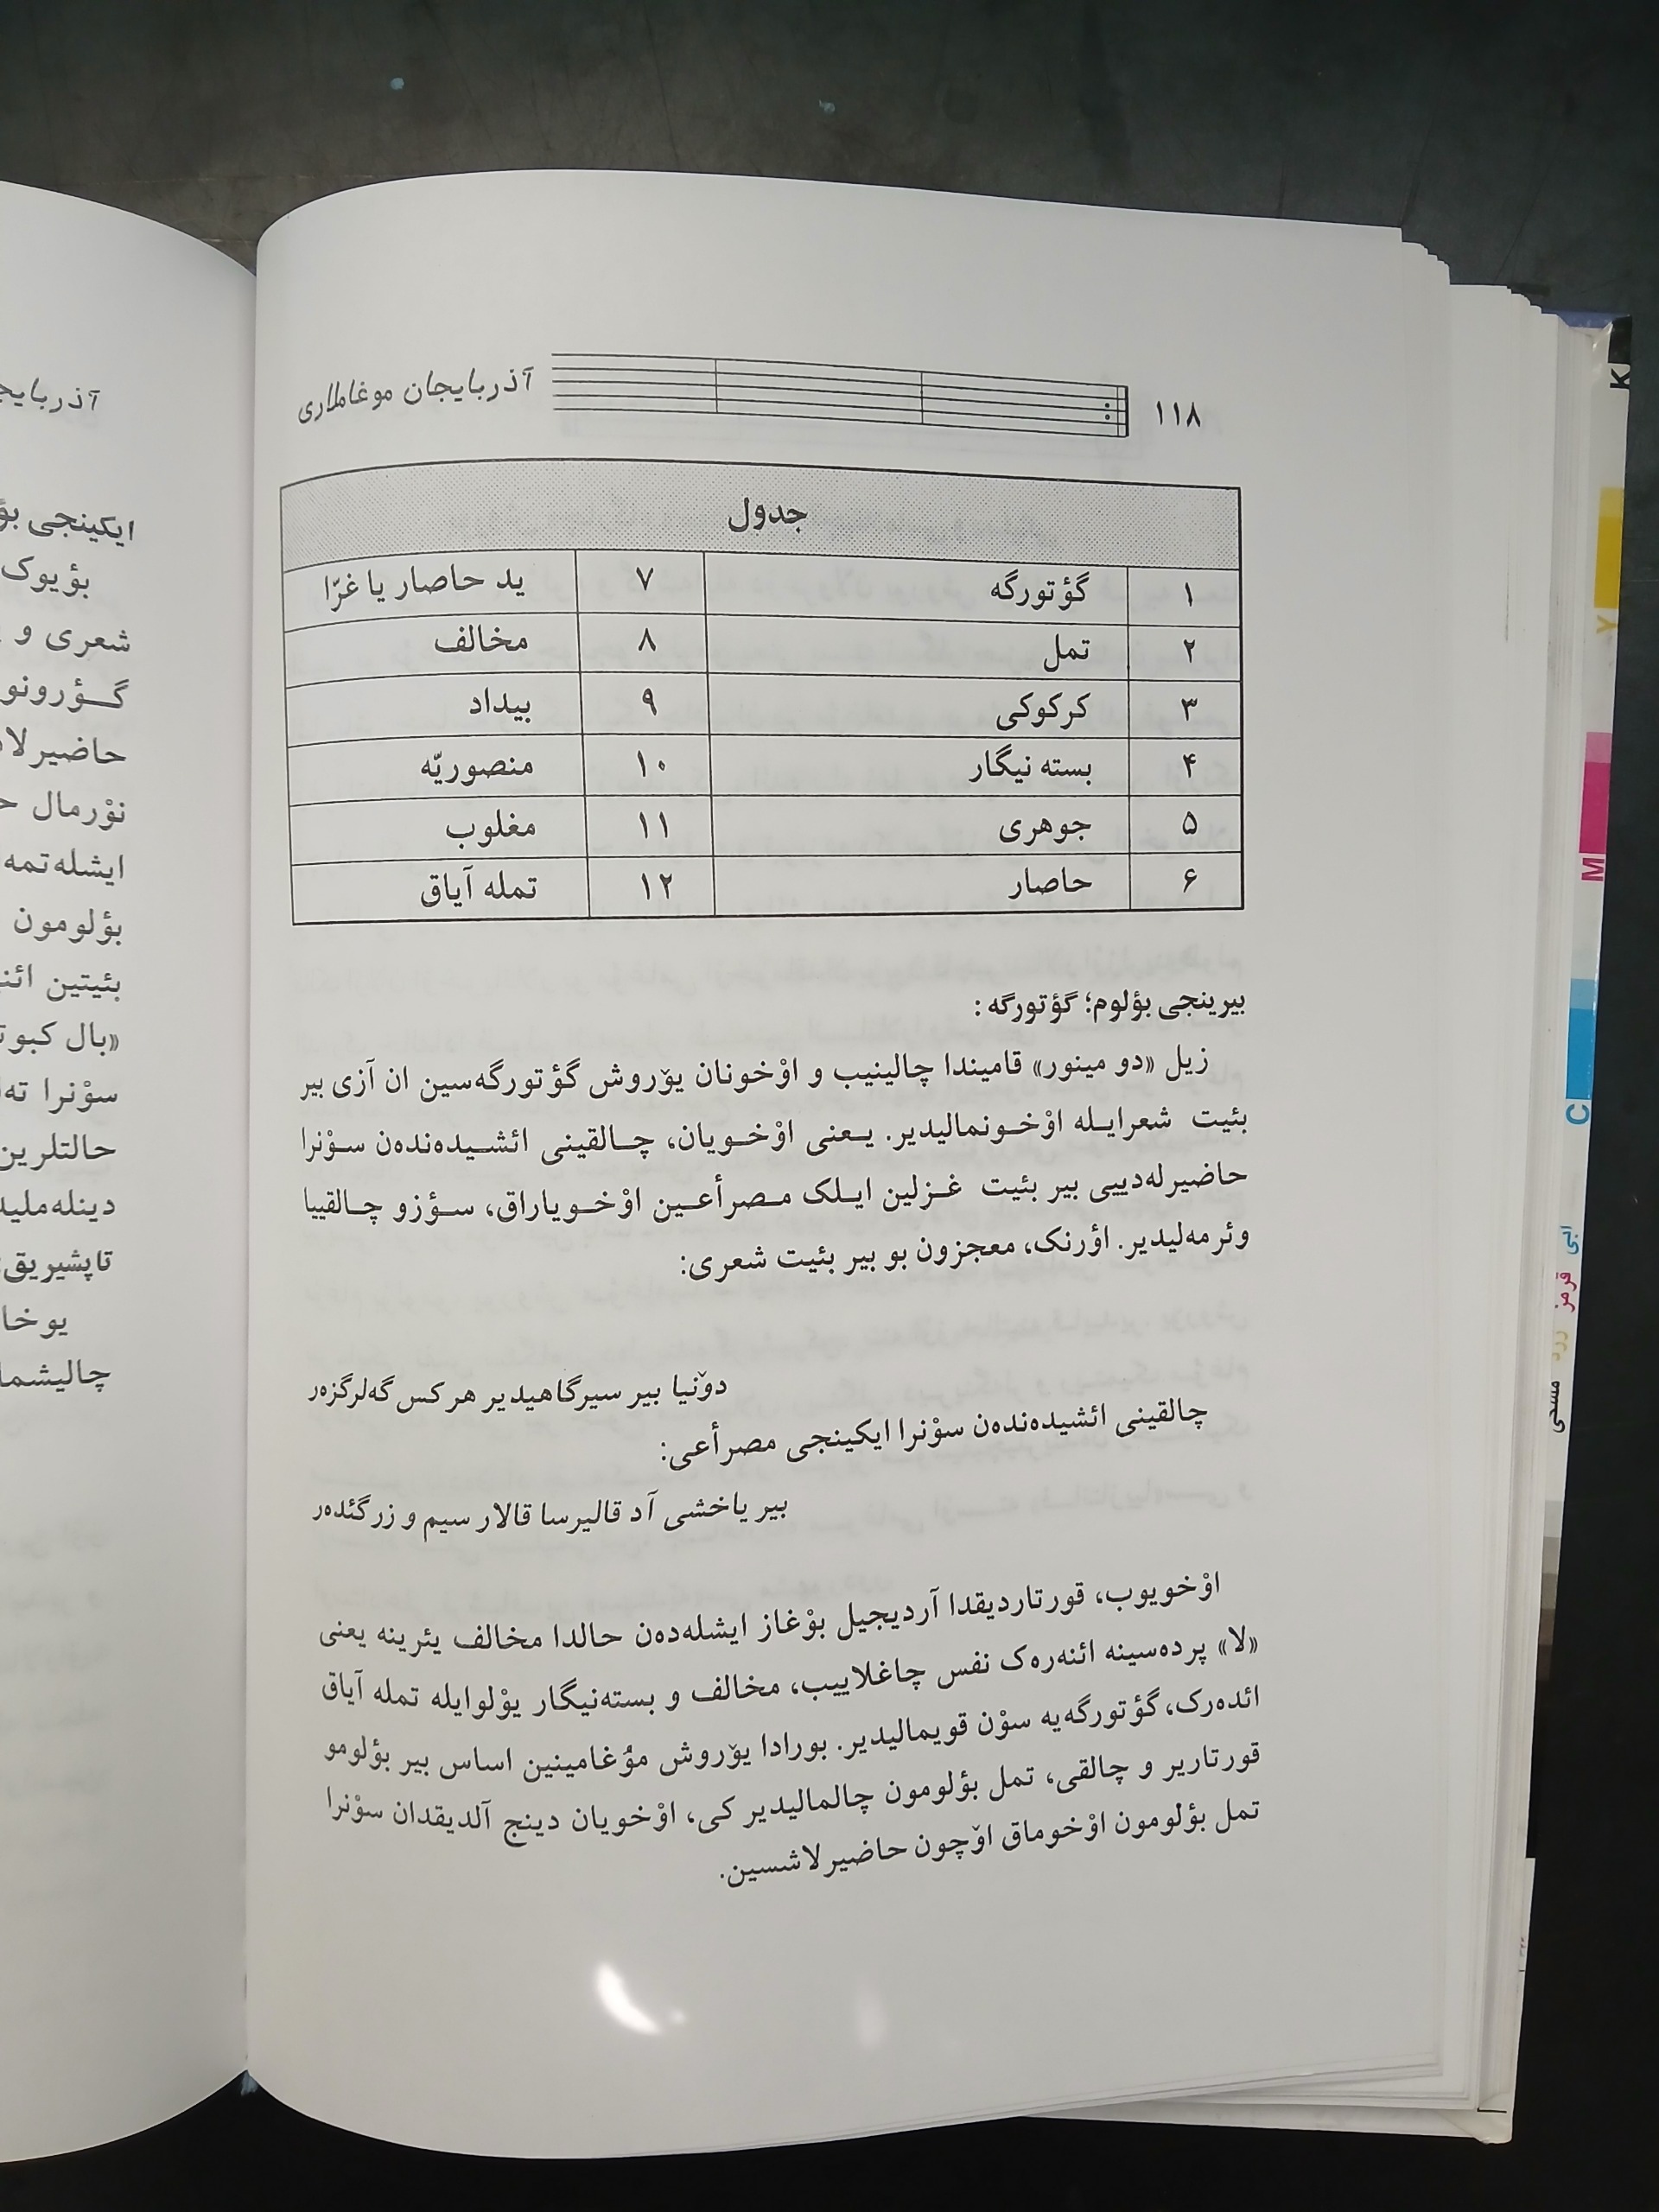 ۱۱۸ آذربایجان موغاملاری
جدول
۱ گؤتورگه ۷ ید حاصار یا غرّا
۲ تمل ۸ مخالف
۳ کرکوکی ۹ بیداد
۴ بسته نیگار ۱۰ منصوریّه
۵ جوهری ۱۱ مغلوب
۶ حاصار ۱۲ تمله آیاق
بیرینجی بؤلوم؛ گؤتورگه :
زیل «دو مینور» قامیندا چالینیب و اوْخونان یوٚروش گؤتورگه‌سین ان آزی بیر
بئیت شعرایـله اوْخـونمالیدیر. یـعنی اوْخـویان، چـالقینی ائشـیده‌نده‌ن سـوْنرا
حاضیرله‌دییی بیر بئیت غـزلین ایـلک مـصرأعـین اوْخـویاراق، سـؤزو چـالقییا
وئرمه‌لیدیر. اؤرنک، معجزون بو بیر بئیت شعری:
دوٚنیا بیر سیرگاهیدیر هر کس گه‌لرگزه‌ر
چالقینی ائشیده‌نده‌ن سوْنرا ایکینجی مصرأعی:
بیر یاخشی آد قالیرسا قالار سیم و زر گئده‌ر
اوْخویوب، قورتاردیقدا آردیجیل بوْغاز ایشله‌ده‌ن حالدا مخالف یئرینه یعنی
«لا» پرده‌سینه ائنه‌ره‌ک نفس چاغلاییب، مخالف و بسته‌نیگار یوْلوایله تمله آیاق
ائده‌رک، گؤتورگه‌یه سوْن قویمالیدیر. بورادا یوٚروش موُغامینین اساس بیر بؤلومو
قورتاریر و چالقی، تمل بؤلومون چالمالیدیر کی، اوْخویان دینج آلدیقدان سوْنرا
تمل بؤلومون اوْخوماق اوٚچون حاضیرلاشسین.
ایکینجی
بؤیوک
شعری و
گـؤرونو
نوْرمال
ایشله‌تمه
بؤلومون
بئیتین
«بال
سوْنرا
حالتلرین
یوخا
K
Y
M
C
آبی قرمز زرد مشکی